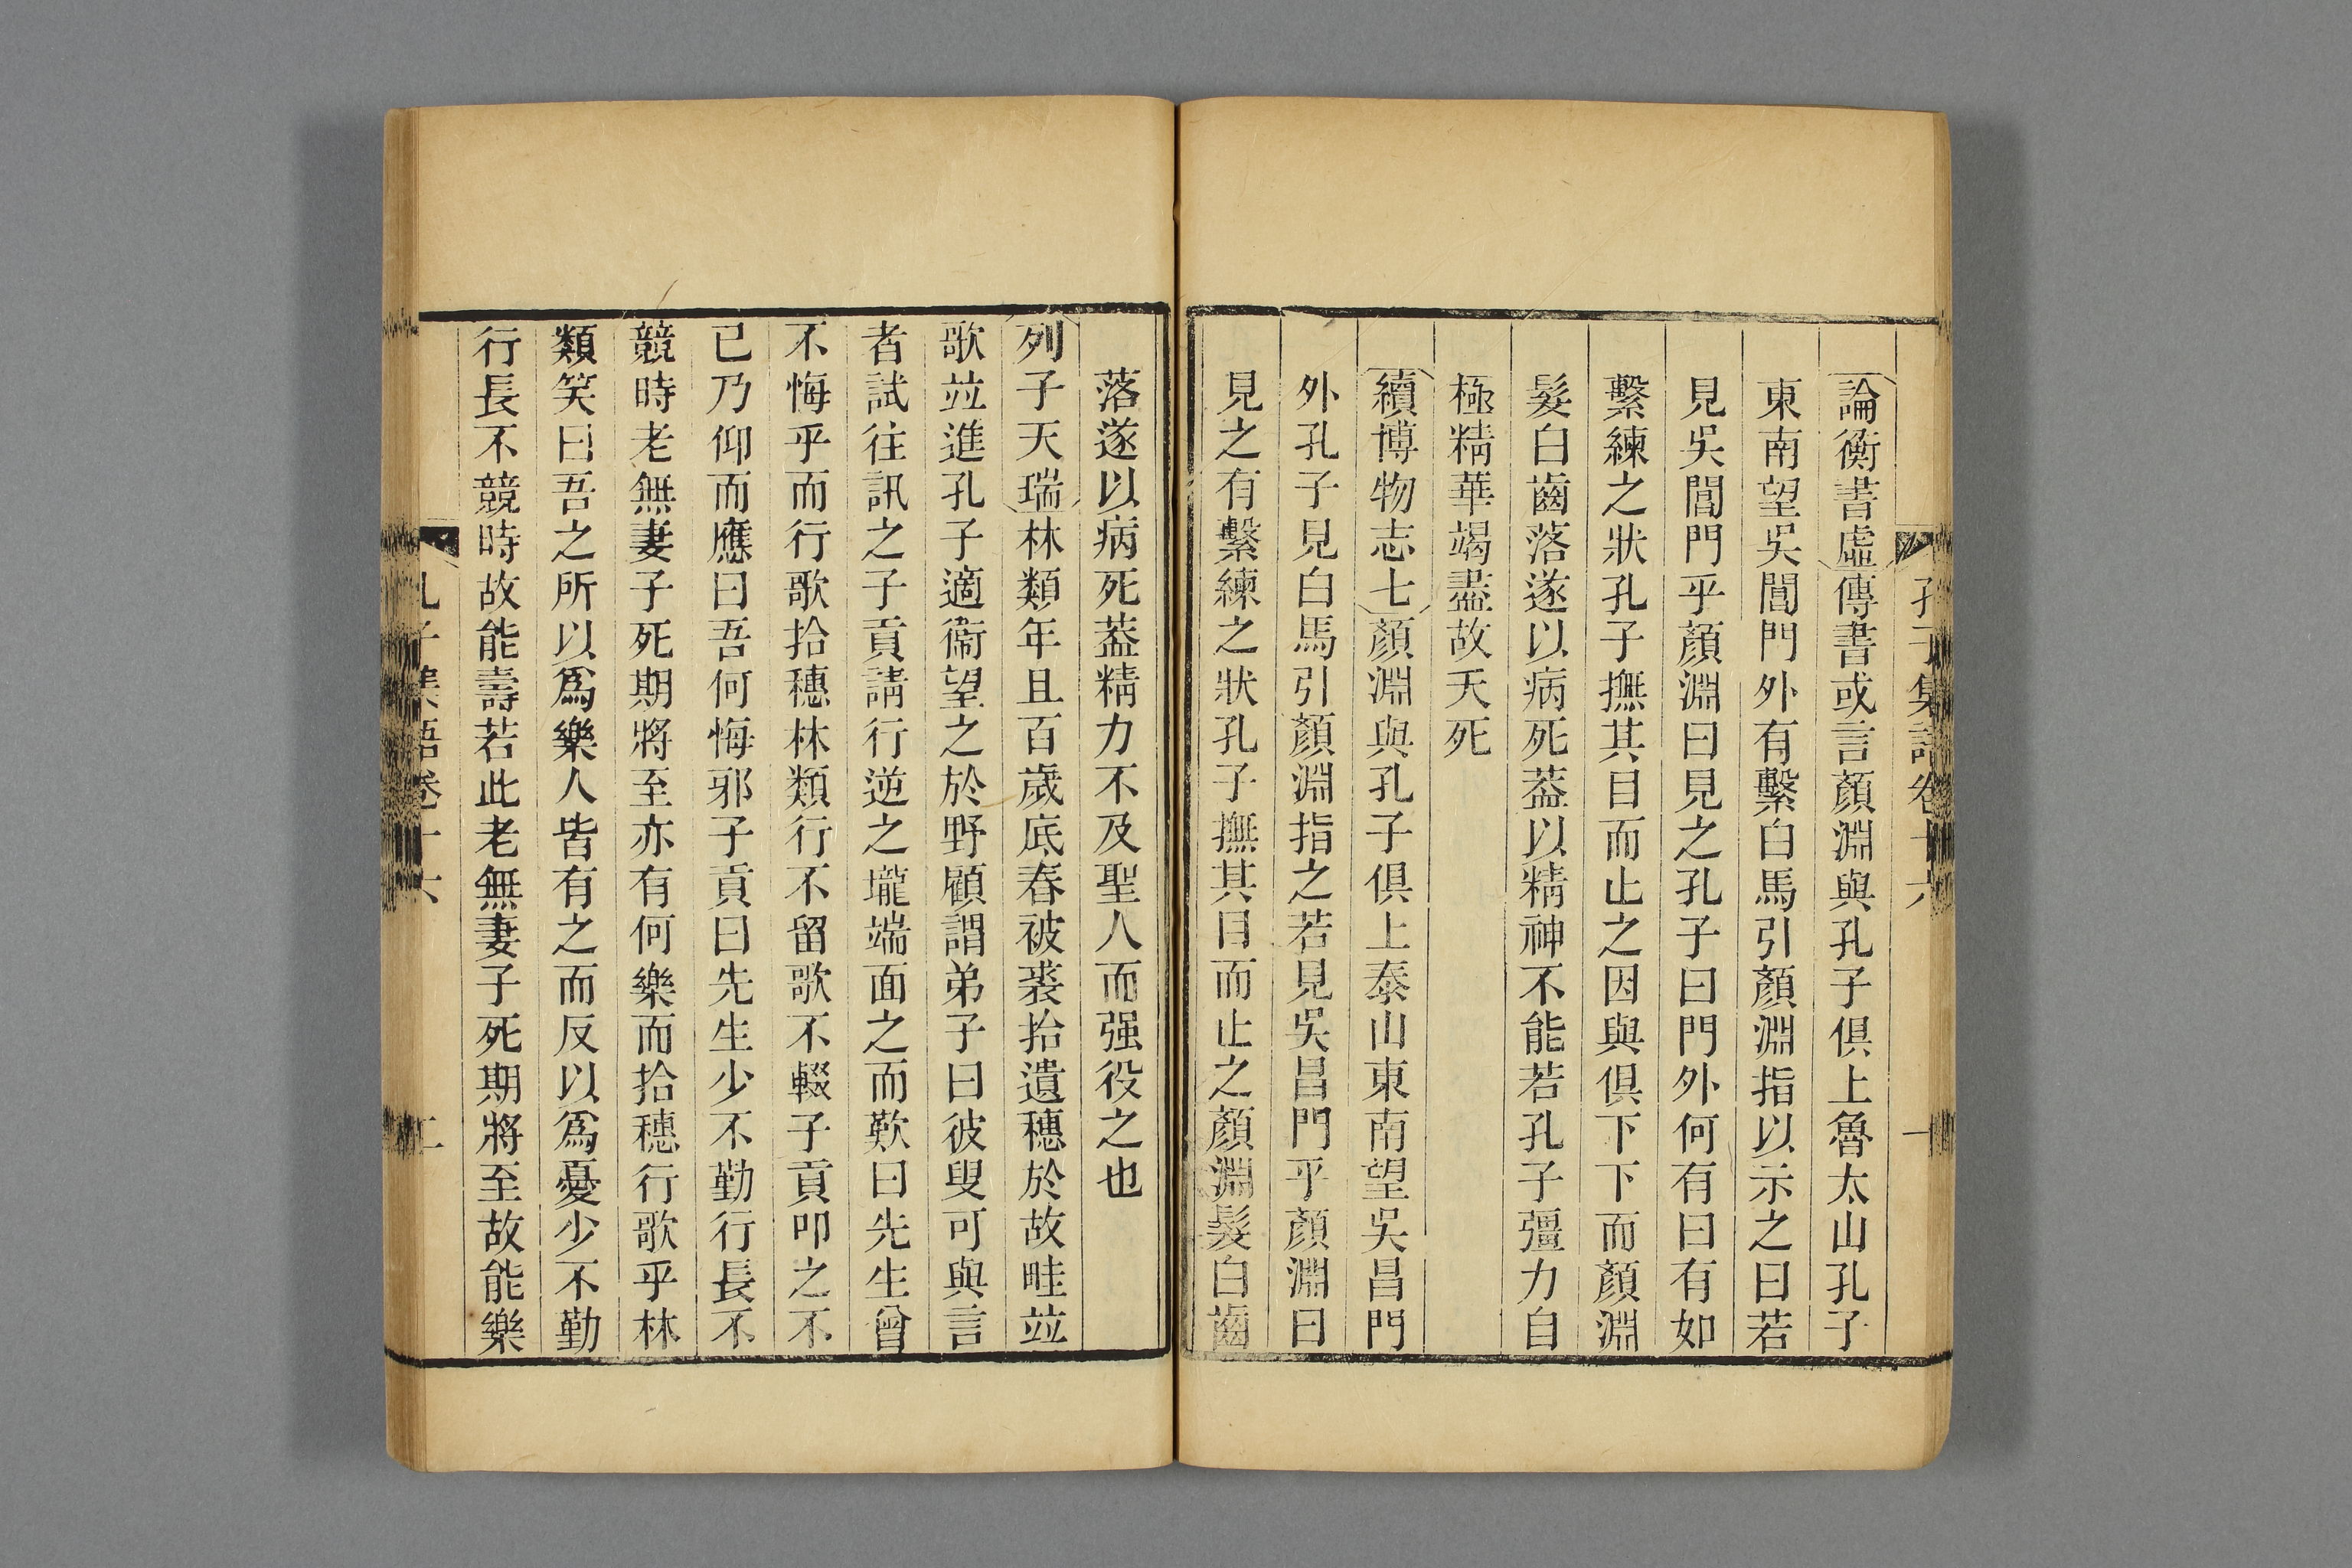 孔子集語卷十六 一
論衡書虛傳書或言顏淵與孔子俱上魯太山孔子
東南望吳閶門外有繫白馬引顏淵指以示之曰若
見吳閶門乎顏淵曰見之孔子曰門外何有曰有如
繫練之狀孔子撫其目而止之因與俱下下而顏淵
髮白齒落遂以病死葢以精神不能若孔子彊力自
極精華竭盡故夭死
續博物志七顏淵與孔子俱上泰山東南望吳昌門
外孔子見白馬引顏淵指之若見吳昌門乎顏淵曰
見之有繫練之狀孔子撫其目而止之顏淵髮白齒
落遂以病死葢精力不及聖人而强役之也
列子天瑞林類年且百歲底春被裘拾遺穗於故畦竝
歌竝進孔子適衞望之於野顧謂弟子曰彼叟可與言
者試往訊之子貢請行逆之壠端面之而歎曰先生曾
不悔乎而行歌拾穗林類行不留歌不輟子貢叩之不
已乃仰而應曰吾何悔邪子貢曰先生少不勤行長不
競時老無妻子死期將至亦有何樂而拾穗行歌乎林
類笑曰吾之所以爲樂人皆有之而反以爲憂少不勤
行長不競時故能壽若此老無妻子死期將至故能樂
孔子集語卷十六 二